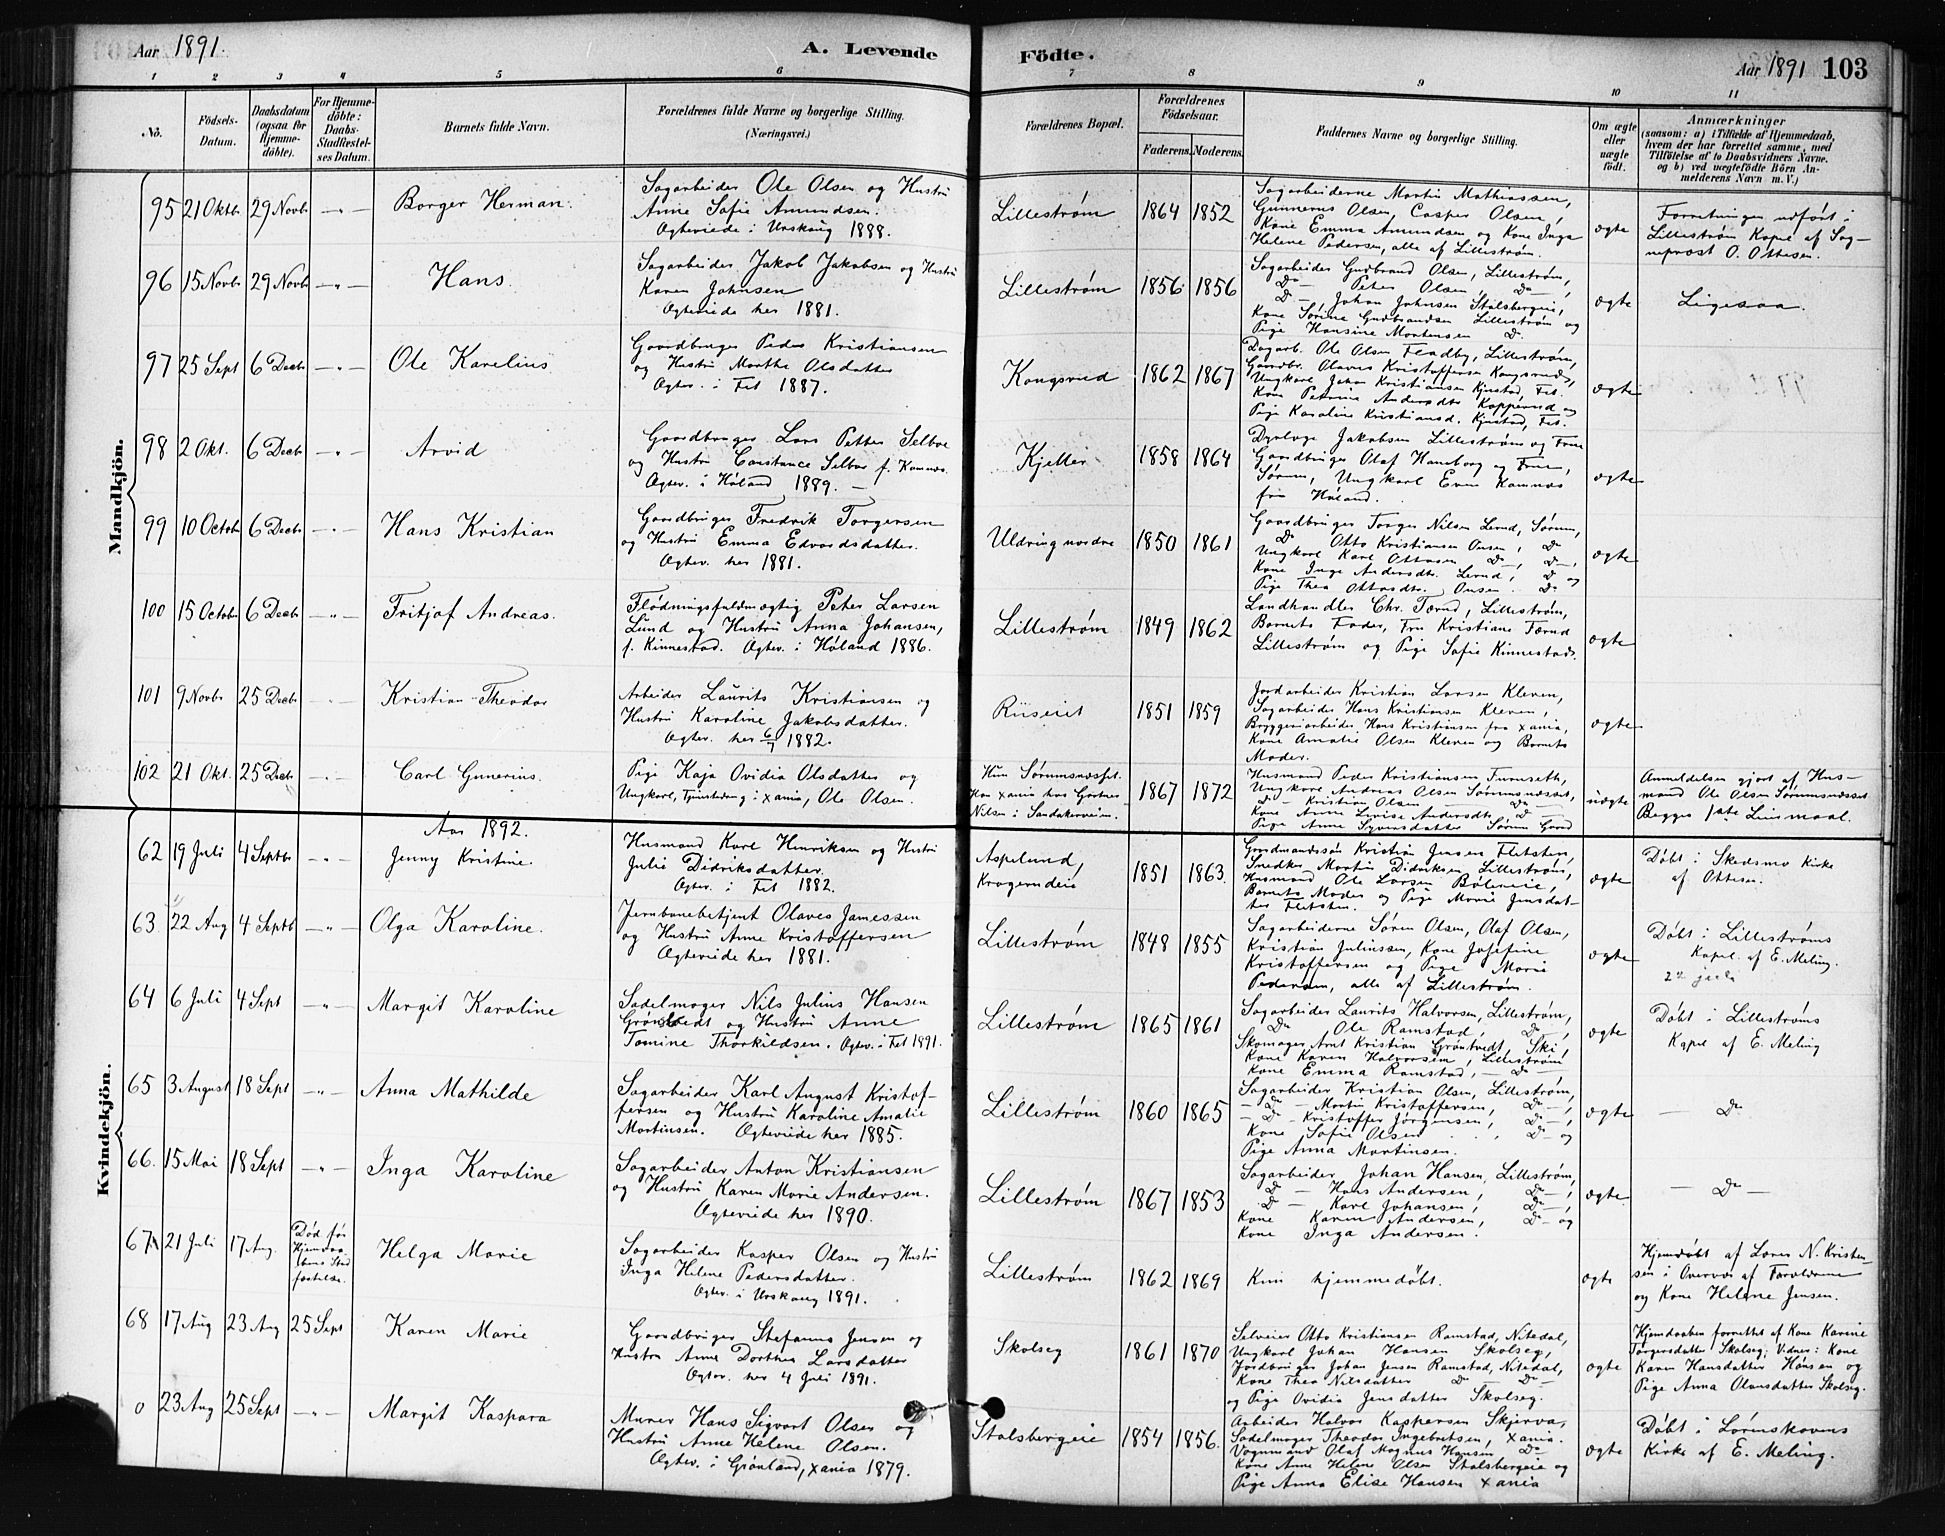 Aar 1891.
A. Levende
Födte.
Aar 1891
103
1 2 3 4 5 6 7 8 9 10 11
No.
Födsels-
Datum.
Daabsdatum
(ogsaa for
Hjemme-
döbte).
For Hjemme-
döbte:
Daabs-
Stadfæstel-
ses Datum.
Barnets fulde Navn.
Forældrenes fulde Navne og borgerlige Stilling.
(Næringsvei.)
Forældrenes Bopæl.
Forældrenes
Födselsaar.
Faderens.
Moderens.
Faddernes Navne og borgerlige Stilling.
Om ægte
eller
uægte
födt.
Anmærkninger
(saasom: a) i Tilfælde af Hjemmedaab,
hvem der har forrettet samme, med
Tilföielse af to Daabsvidners Navne.
og b) ved uægtefödte Börn An-
melderens Navn m. V.)
Mandkjön.
95 21 Oktbr 29 Novbr — " — Borger Herman.
Sagarbeider Ole Olsen og Hustru
Anne Sofie Amundsen.
Ægteviede i Urskoug 1888.
Lillestrøm 1864 1852
Sagarbeiderne Martin Mathiassen,
Gunnerus Olsen, Casper Olsen,
Kone Emma Amundsen og Kone Inga
Helene Pedersen, alle af Lillestrøm.
ægte
Forretningen udført i
Lillestrøm Kapel af Sog-
neprost O. Ottesen.
96 15 Novbr 29 Novbr — " — Hans.
Sagarbeider Jakob Jakobsen og Hustru
Karen Johnsen
Ægteviede her 1881.
Lillestrøm 1856 1856
Sagarbeider Gudbrand Olsen, Lillestrøm,
Do — Peter Olsen, Do —,
Do — Johan Johnsen Stalsbergeie,
Kone Sørine Gudbrandsen Lillestrøm og
Pige Hansine Mortensen Do
ægte
Ligesaa.
97 25 Sept 6 Decbr — " — Ole Karelius
Gaardbruger Peder Kristiansen
og Hustru Marthe Olsdatter
Ægtev. i Fet 1887.
Kongsrud 1862 1867
Dagarb. Ole Olsen Fladby, Lillestrøm,
Gaardbr. Olaves Kristoffersen Kongsrud,
Ungkarl Johan Kristiansen Kjustad, Fet.
Kone Petrine Andersdtr Kopperud og
Pige Karoline Kristiansd. Kjustad, Fet.
ægte
98 2 Okt. 6 Decbr — " — Arvid
Gaardbruger Lars Petter Selboe
og Hustru Constance Selboe f. Kamnæs.
Ægtev. i Høland 1889. —
Kjeller 1858 1864
Dyrlæge Jakobsen Lillestrøm og Frue
Gaardbruger Olaf Haneborg og Frue,
Sørum, Ungkarl Even Kamnæs
fra Høland.
ægte
99 10 Octobr 6 Decbr — " — Hans Kristian
Gaardbruger Fredrik Torgersen
og Hustru Emma Edvardsdatter.
Ægtev. her 1881.
Uldring nordre 1850 1861
Gaardbruger Torger Nilsen Lerud, Sørum,
Do Otto Kristiansen Onsen, Do
Ungkarl Karl Ottosen Do —, Do —,
Kone Inge Andersdtr. Lerud, Do og
Pige Thea Ottosdtr. Onsen. Do
ægte
100 15 Octobr 6 Decbr — " — Fritjof Andreas.
Flødningsfuldmægtig Peter Larsen
Lund og Hustru Anna Johansen,
f. Kinnestad. Ægtev. i Høland 1886.
Lillestrøm 1849 1862
Landhandler Chr. Tærud, Lillestrøm,
Barnets Fader, Fru Kristiane Tærud
Lillestrøm og Pige Sofie Kinnestad.
ægte
101 9 Novbr 25 Decbr — " — Kristian Theodor
Arbeider Laurits Kristiansen og
Hustru Karoline Jakobsdatter.
Ægtev. her 6/7 1882.
Riiseiet 1851 1859
Jordarbeider Kristian Larsen Kleven,
Sagarbeider Hans Kristiansen Kleven,
Bryggeriarbeider Hans Kristiansen fra Xania,
Kone Amalie Olsen Kleven og Barnets
Moder.
ægte
102 21 Okt. 25 Decbr — " — Carl Gunerius.
Pige Kaja Ovidia Olsdatter og
Ungkarl, Tjenestedreng i Xania, Ole Olsen.
Hun Sørumsnæsset.
Han Xania hos Gartner
Nilsen i Sandakerveien.
1867 1872
Husmand Peder Kristiansen Furuseth,
Ungkarl Andreas Olsen Sørumsnæsset,
Do — Kristian Olsen — Do —
Kone Anne Lovise Andersdtr Do —
Pige Anne Syversdatter Sørum Gaard
uægte
Anmeldelsen gjort af Hus-
mand Ole Olsen Sørumsnæsset
Begges 1ste Leiermaal.
Kvindekjön.
Aar 1892.
62 19 Juli 4 Septbr — " — Jenny Kristine.
Husmand Karl Henriksen og Hustru
Julie Didriksdatter.
Ægtev. i Fet 1882.
Aspelund,
Kragerudeie
1851 1863.
Gaardmandssøn Kristian Jensen Fletsten,
Snedker Martin Didriksen Lillestrøm,
Husmand Ole Larsen Bølereie,
Barnets Moder og Pige Marie Jensdat-
ter Fletsten.
ægte
Døbt i Skedsmo Kirke
af Ottesen.
63. 22 Aug 4 Septb — " — Olga Karoline.
Jernbanebetjent Olaves Jamessen
og Hustru Anne Kristoffersen
Ægteviede her 1881.
Lillestrøm 1848 1855
Sagarbeiderne Søren Olsen, Olaf Olsen,
Kristian Juliussen, Kone Josefine
Kristoffersen og Pige Marie
Pedersen, alle af Lillestrøm.
ægte
Døbt i Lillestrøms
Kapel. af E. Meling.
22 juli
64 6 Juli 4 Sept — " — Margit Karoline
Sadelmager Nils Julius Hansen
Grøntvedt og Hustru Anne
Tomine Thorkildsen. Ægtev. i Fet 1891.
Lillestrøm 1865 1861
Sagarbeider Laurits Halvorsen, Lillestrøm,
Do Ole Ramstad, Do,
Skomager Arnt Kristian Grøntvedt, Ski,
Kone Karen Halvorsen, Lillestrøm,
Kone Emma Ramstad, — Do —
ægte
Døbt i Lillestrøms
Kapel af E. Meling
65 3 August 18 Sept — " — Anna Mathilde
Sagarbeider Karl August Kristof-
fersen og Hustru Karoline Amalie
Martinsen. Ægteviede her 1885.
Lillestrøm 1860 1865
Sagarbeider Kristian Olsen, Lillestrøm,
— Do — Martin Kristoffersen, Do —,
— Do — Kristoffer Jørgensen, Do —,
Kone Sofie Olsen . . , Do — og
Pige Anna Martinsen.
ægte
— Do
66. 15 Mai 18 Sept — " — Inga Karoline
Sagarbeider Anton Kristiansen
og Hustru Karen Marie Andersen.
Ægteviede her 1890.
Lillestrøm 1867 1853
Sagarbeider Johan Hansen, Lillestrøm,
Do — Hans Andersen, Do —,
Do — Karl Johansen, Do —,
Kone Karen Andersen, Do — og
Kone Inga Andersen.
ægte
— Do —
67 21 Juli 17 Aug.
Død før
Hjemdaa-
bens Stad
fæstelse.
Helga Marie
Sagarbeider Kasper Olsen og Hustru
Inga Helene Pedersdatter.
Ægtev. i Urskoug 1891.
Lillestrøm 1862 1869
Kun hjemmedøbt.
ægte
Hjemdøbt af Lærer N. Kristen-
sen i Overvær af Forældrene
og Kone Helene Jensen.
68 17 Aug 23 Aug 25 Sept Karen Marie
Gaardbruger Stefanus Jensen og
Hustru Anne Dorthea Larsdatter
Ægtev. her 4 Juli 1891.
Skolseg 1861 1870
Selveier Otto Kristiansen Ramstad, Nitedal,
Ungkarl Johan Hansen Skolseg,
Jordbruger Johan Jensen Ramstad, Nitedal,
Kone Thea Nilsdatter Do — Do —
og Pige Ovidia Jensdatter Skolseg.
ægte
Hjemdaaben forrettet af Kone Karine
Torgersdatter Skolseg; Vidner: Kone
Karen Hansdatter Hansen og
Pige Anna Olausdatter Skolseg.
0 23 Aug 25 Sept — " — Margit Kaspara
Murer Hans Sigvart Olsen og
Hustru Anne Helene Olsen.
Ægtev. i Grønland, Xania 1879.
Stalsbergeie 1854 1856.
Arbeider Halvor Kaspersen Skjerva,
Sadelmager Theodor Ingebretsen, Xania.
Vognmand Olaf Magnus Hansen, Do
Kone Anne Helene Olsen Stalsbergeie og
Pige Anna Elise Hansen Xania
ægte
Døbt i Lørenskovens
Kirke af E. Meling.